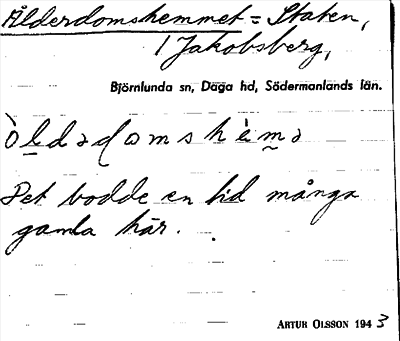 Ålderdomshemmet = Staten,
1 Jakobsberg,
Björnlunda sn, Daga hd, Södermanlands län.
òldədomshèmə
Det bodde en tid många
gamla här.
ARTUR OLSSON 1943